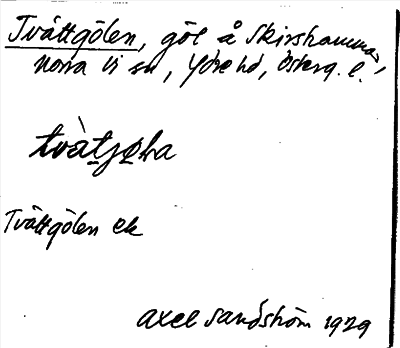 Tvättgölen, göl å Skirshammar,
Norra Vi sn, Ydre hd, Österg. l.
tvàtjøla
Tvättgölen ek
Axel Sandström 1929